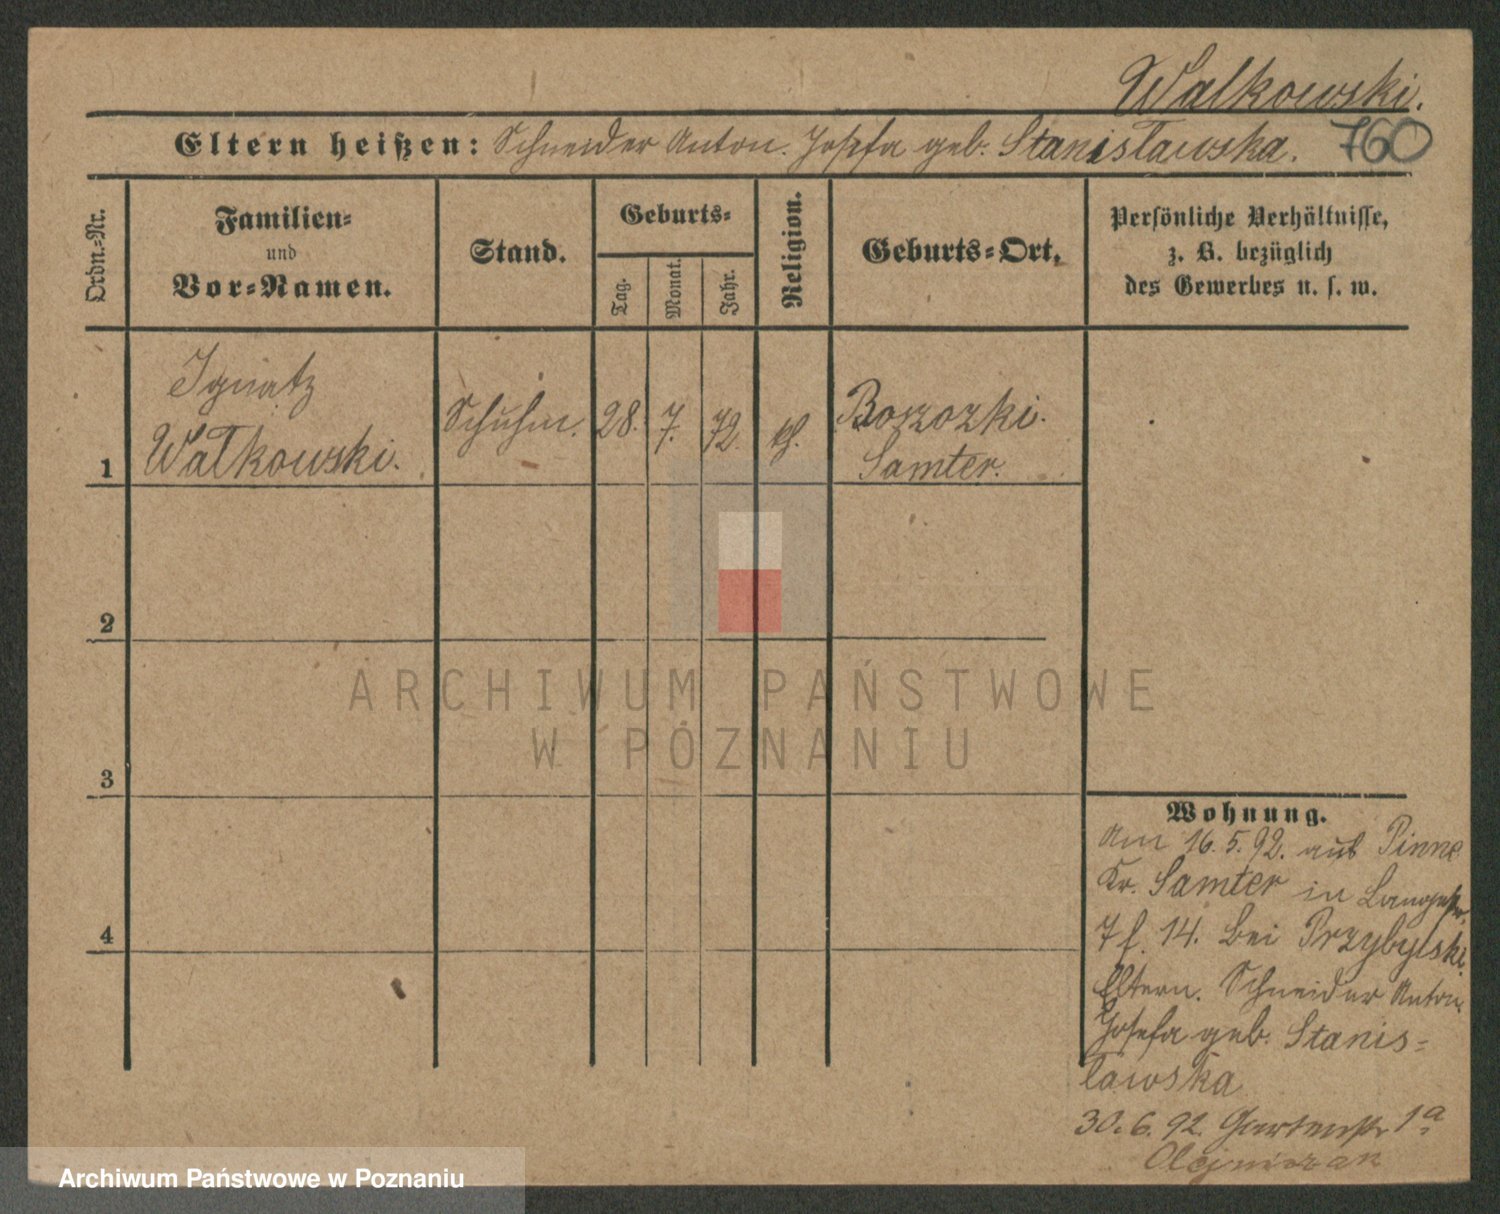 Walkowski.
Eltern heißen: Schneider Anton. Josefa geb. Stanisławska. 760
Ordn.-Nr.
Familien-
und
Vor-Namen.
Stand.
Geburts-
Tag.
Monat.
Jahr.
Religion.
Geburts-Ort.
Persönliche Verhältnisse,
z. B. bezüglich
des Gewerbes u. s. w.
Ignatz
1 Wałkowski. Schuhm. 28. 7. 72. kth.
Samter.
2
3
4
ARCHIWUM PAŃSTWOWE
W POZNANIU
Wohnung.
Am 16.5.92. aus Pinne
Kr. Samter in Langestr.
7 f. 14. bei Przybylski.
Eltern. Schneider Anton.
Josefa geb. Stanis=
ławska
30.6.92. Gartenstr 1a
Olejniczak
Archiwum Państwowe w Poznaniu